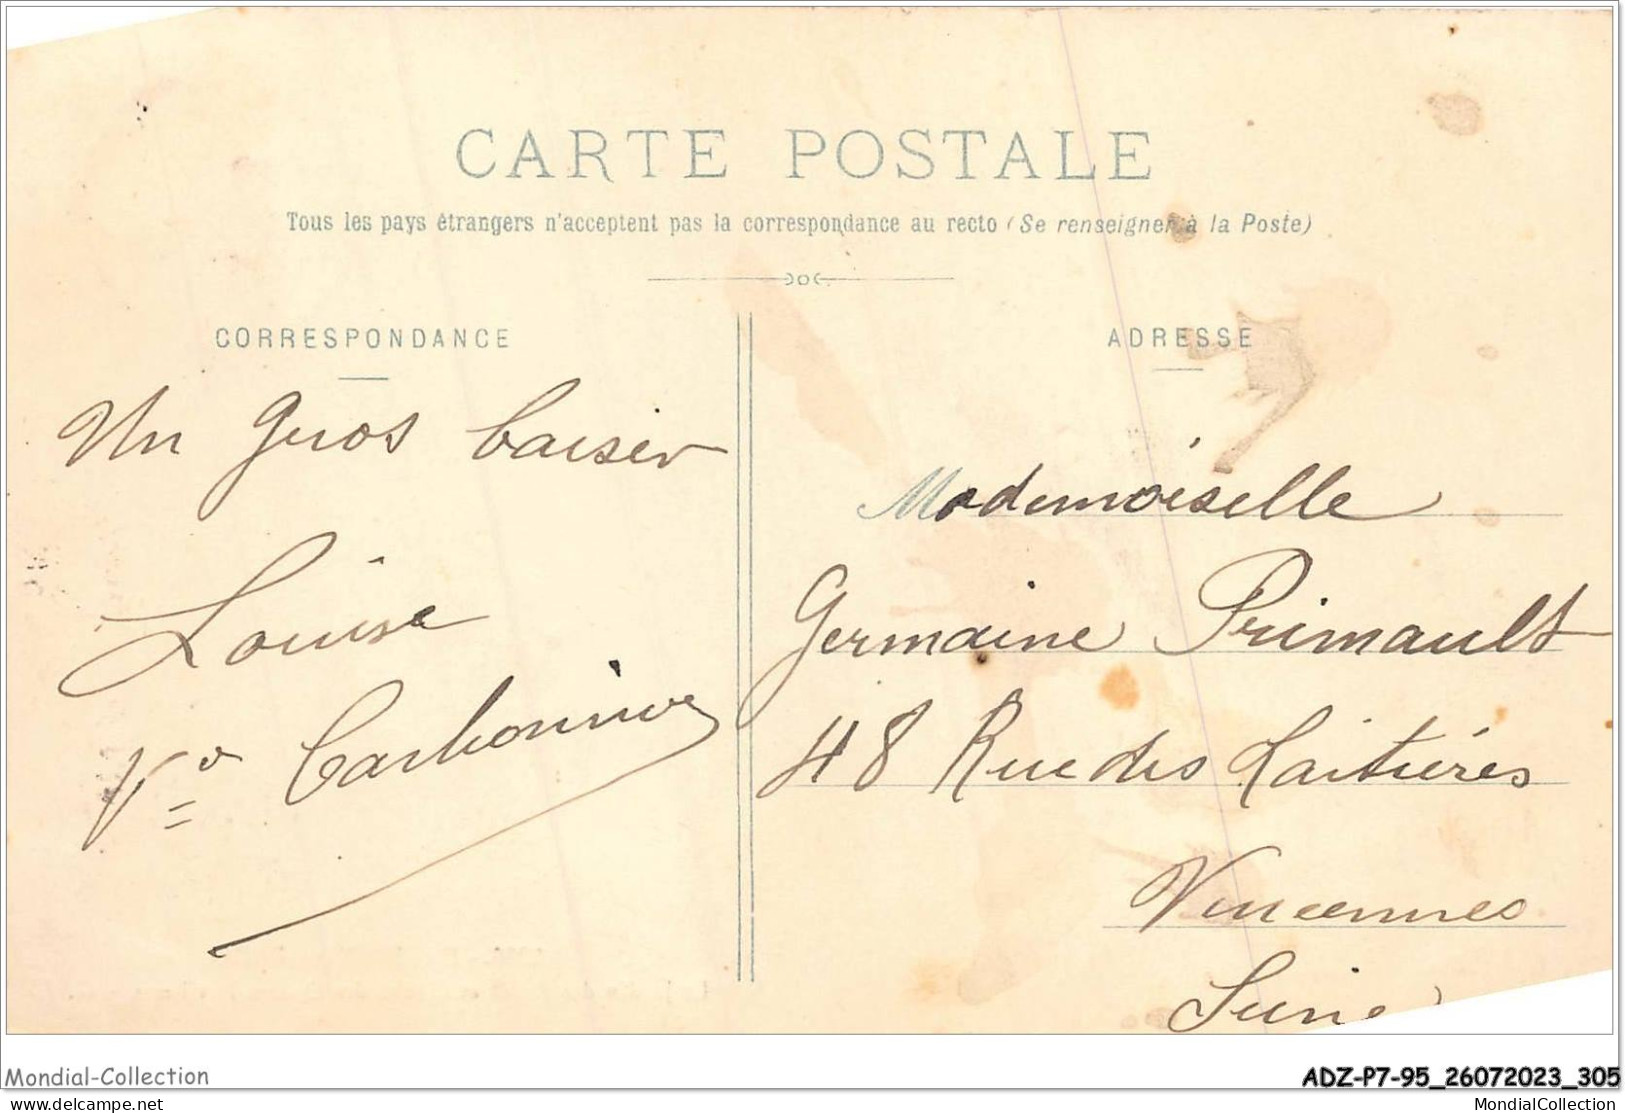 CARTE POSTALE
Tous les pays étrangers n'acceptent pas la correspondance au recto (Se renseigner à la Poste)
CORRESPONDANCE
Un gros baiser
Louise
Vve Carbonnier
ADRESSE
Mademoiselle
Germaine Primault
48 Rue des Laitières
Vincennes
Seine
Mondial-Collection
ADZ-P7-95_26072023_305
delcampe.net
MondialCollection